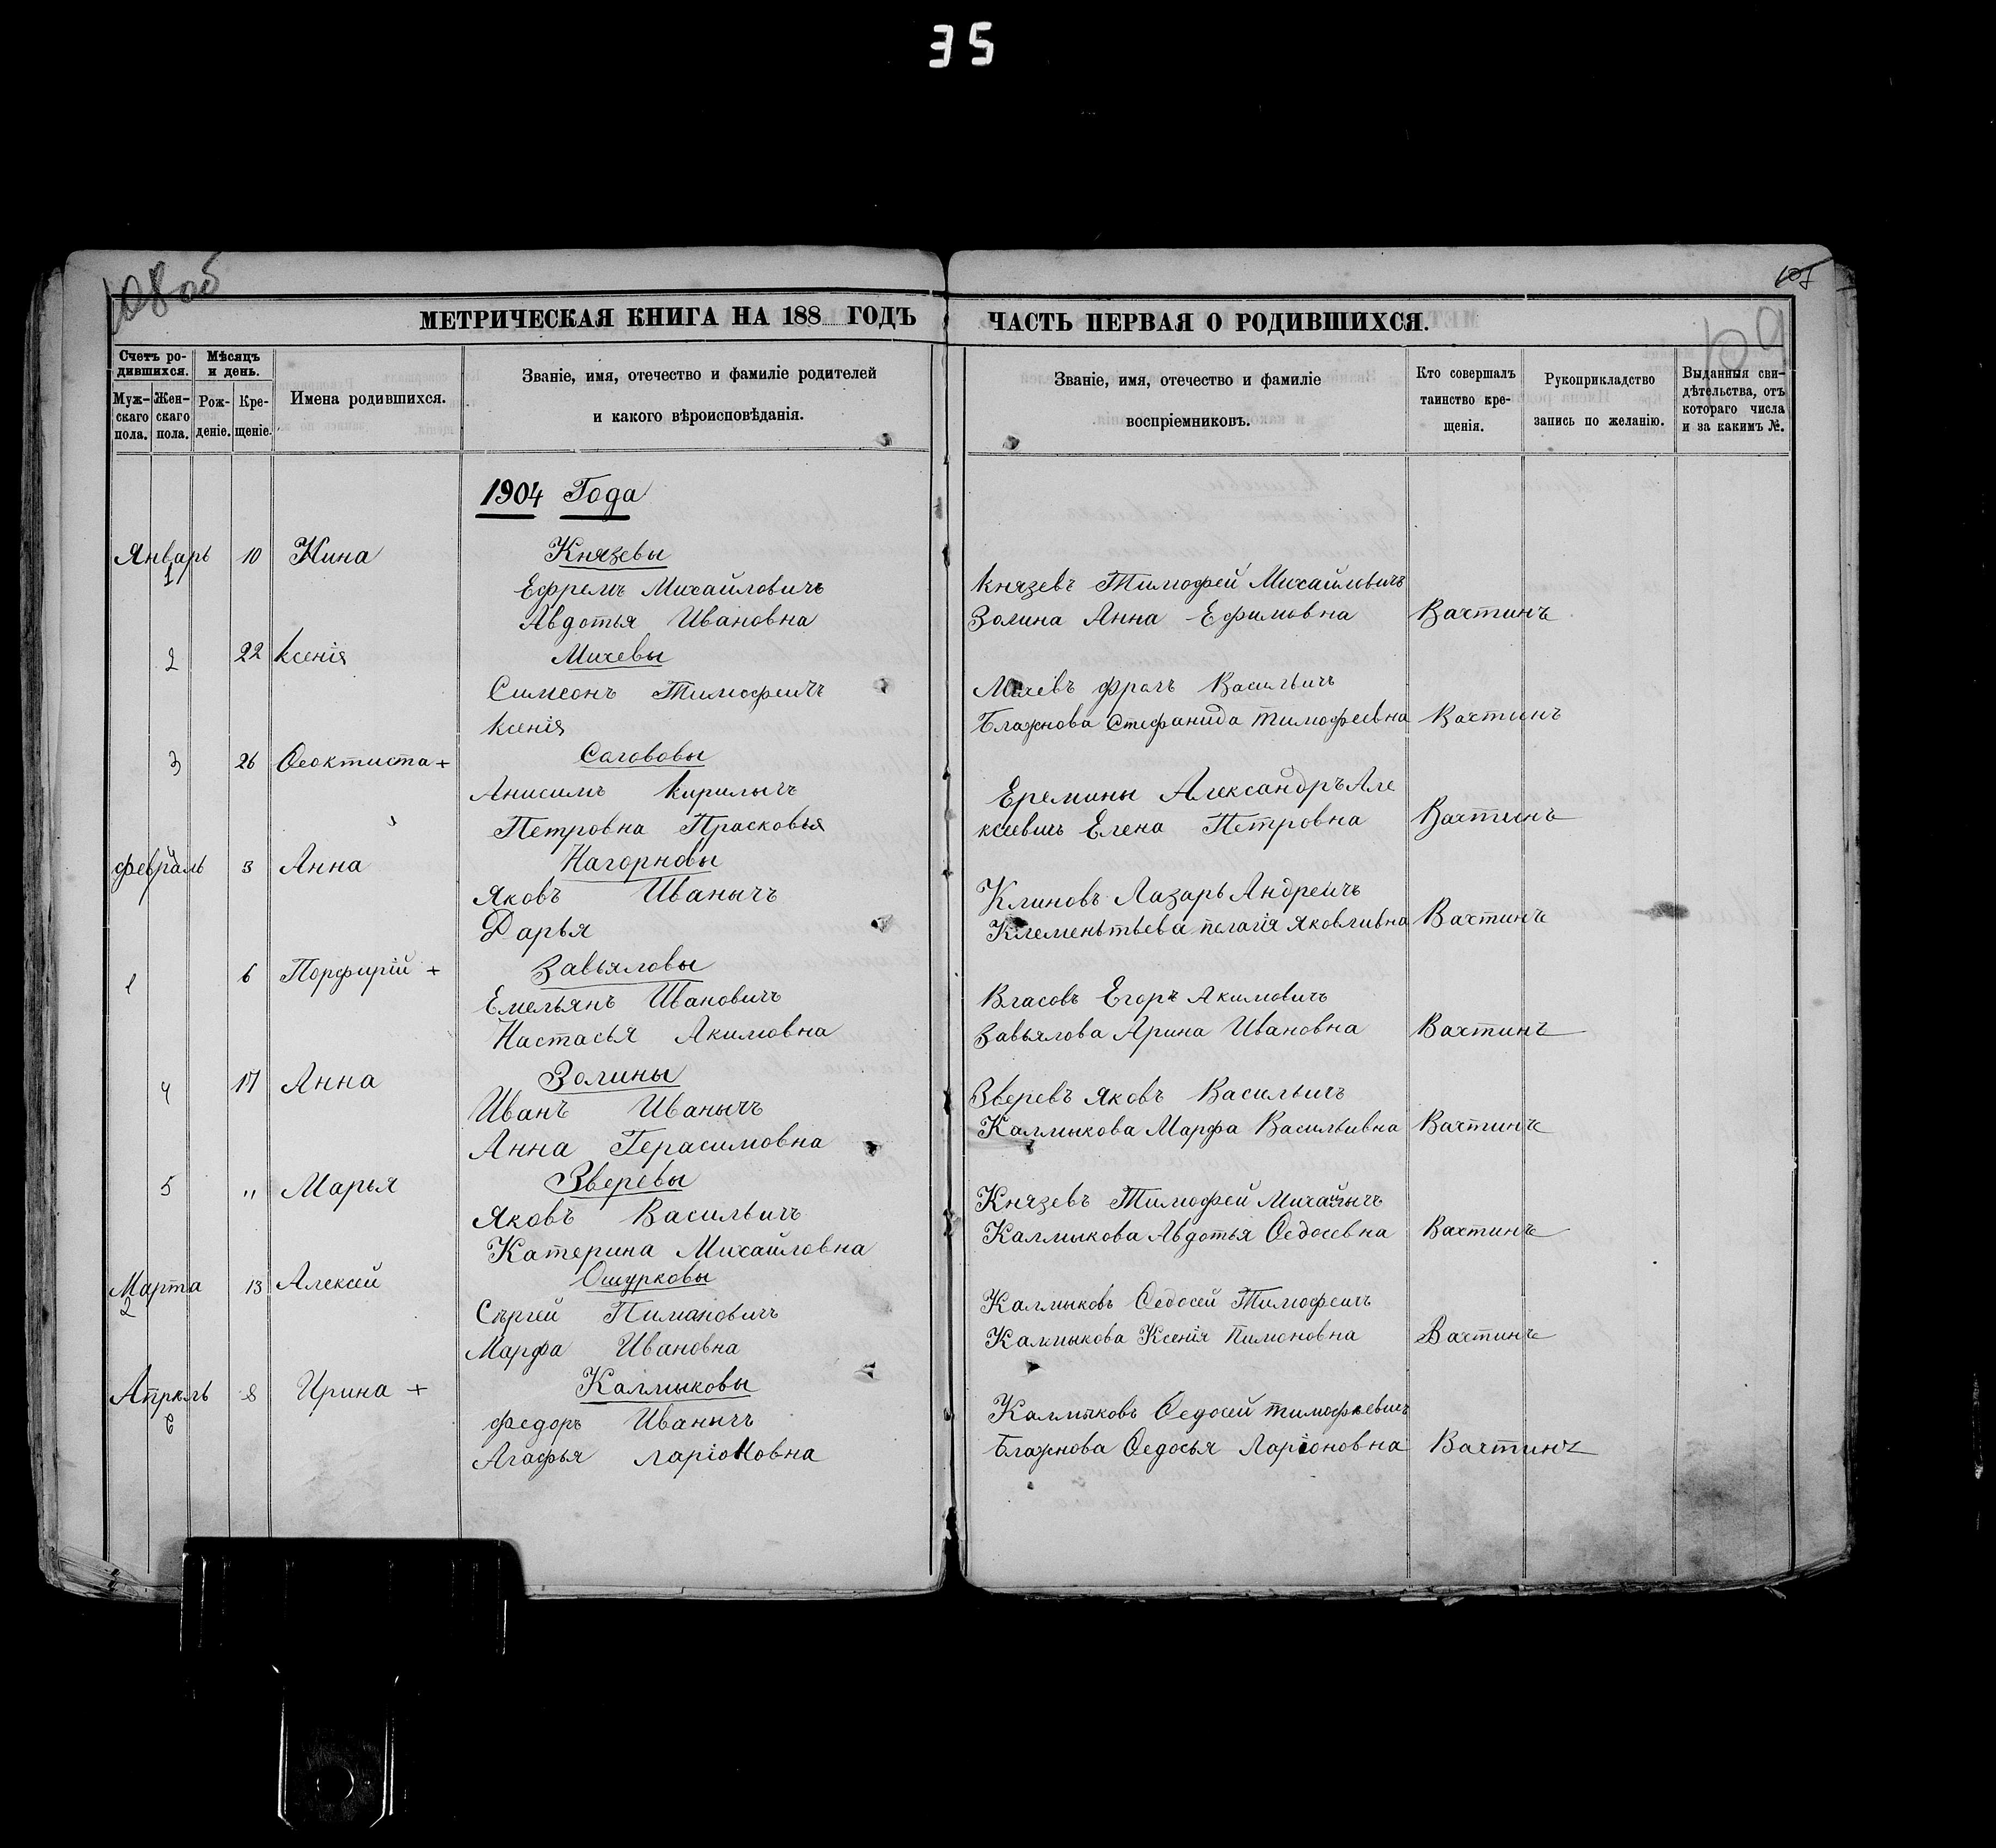 35
108 об
МЕТРИЧЕСКАЯ КНИГА НА 188 ГОДЪ
Счетъ ро-
дившихся.
Мѣсяцъ
и день.
Муж-
скаго
пола.
Жен-
скаго
пола.
Рож-
деніе.
Кре-
щеніе.
Имена родившихся.
Званіе, имя, отечество и фамиліе родителей
и какого вѣроисповѣданія.
1904 Года
Январь 10 Нина Князевы
1
Ефремъ Михайловичъ
Авдотья Ивановна
2 22 Ксенія Михевы
Симеонъ Тимофеичъ
Ксенія
3 26 Ѳеоктиста +
Анисимъ Кирилычъ
Петровна Прасковья
февраль 3 Анна Нагорновы
Яковъ Иванычъ
Дарья
1 6 Порфирій + Завьяловы
Емельянъ Ивановичъ
Настасья Акимовна
4 17 Анна Золины
Иванъ Иванычъ
Анна Герасимовна
5 " Марья Зверевы
Яковъ Васильичъ
Катерина Михайловна
Марта 13 Алексей Ошурковы
2
Сергей Пимановичъ
Марфа Ивановна
Апрель 8 Ирина + Калмыковы
6
Федоръ Иванычъ
Агафья Ларіоновна
109
ЧАСТЬ ПЕРВАЯ О РОДИВШИХСЯ.
Званіе, имя, отечество и фамиліе
воспріемниковъ.
Кто совершалъ
таинство кре-
щенія.
Рукоприкладство
запись по желанію.
Выданныя сви-
дѣтельства, отъ
котораго числа
и за какимъ №.
Князевъ Тимофей Михайловичъ
Золина Анна Ефимовна Вахтинъ
Михевъ Васильичъ
Блажнова Стефанида Тимофеевна Вахтинъ
Еремины Александръ Але
ксевичъ Елена Петровна Вахтинъ
Климовъ Лазарь Андреичъ
Клементьева пелагія Яковливна Вахтинъ
Власовъ Егоръ Акимовичъ
Завьялова Арина Ивановна Вахтинъ
Зверевъ Яковъ Васильичъ
Калмыкова Марфа Васильивна Вахтинъ
Князевъ Тимофей Михайлычъ
Калмыкова Авдотья Ѳедосевна Вахтинъ
Калмыковъ Ѳедосей Тимофеичъ
Калмыкова Ксенія Пимоновна Вахтинъ
Калмыковъ Ѳедосей Тимофѣевичъ
Блажнова Ѳедосья Ларіоновна Вахтинъ